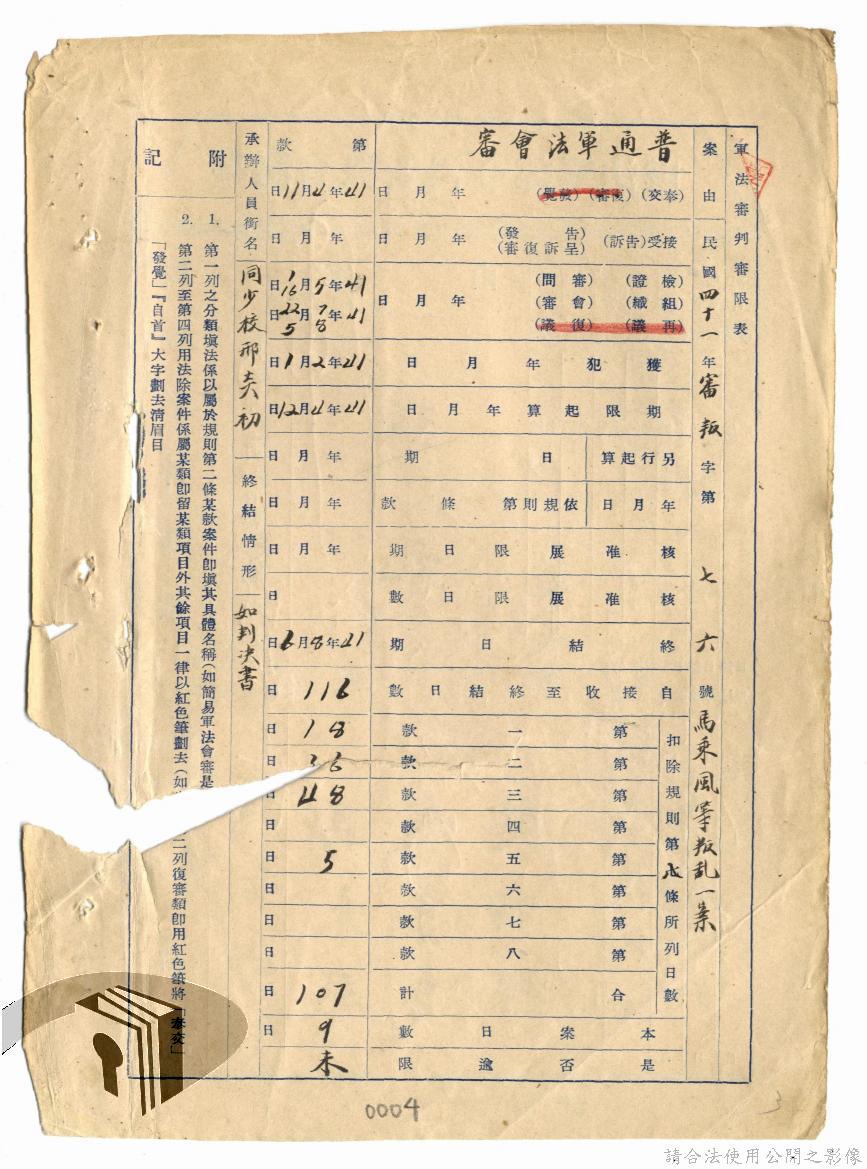 軍法審判審限表
案由 民國四十一年審叛字第七六號馬乘風等叛乱一案
普通軍法會審
第 款
(奉交)(復審)(發覺) 年 月 日
41年4月11日
接受(告訴)(告發)(呈訴復審) 年 月 日
年 月 日
(檢證)(審問)
(組織)(會審)
(再議)(復議)
年 月 日
41年5月16日
41年7月22日
8 5
獲犯年月日 41年2月1日
期限起算年月日 41年4月12日
另行起算日期 年 月 日
年 月 日依規則第 條 款 年 月 日
核准展限日期 年 月 日
核准展限日數 日
終結日期 41年8月6日
自接收至終結日數 116日
扣除規則第 條所列日數
第一款 18日
第二款 36日
第三款 48日
第四款 日
第五款 5日
第六款 日
第七款 日
第八款 日
合計 107日
本案日數 9日
是否逾限 未
承辦人員銜名 同少校邢炎初 終結情形 如判决書
附記
1. 第一列之分類塡法係以屬於規則第二條某款案件卽塡其具體名稱(如簡易軍法會審是
2. 第二列至第四列用法除案件係屬某類卽留某類項目外其餘項目一律以紅色筆劃去(如
二列復審類卽用紅色筆將「奉交」
「發覺」『自首』大字劃去淸眉目
0004
3
請合法使用公開之影像